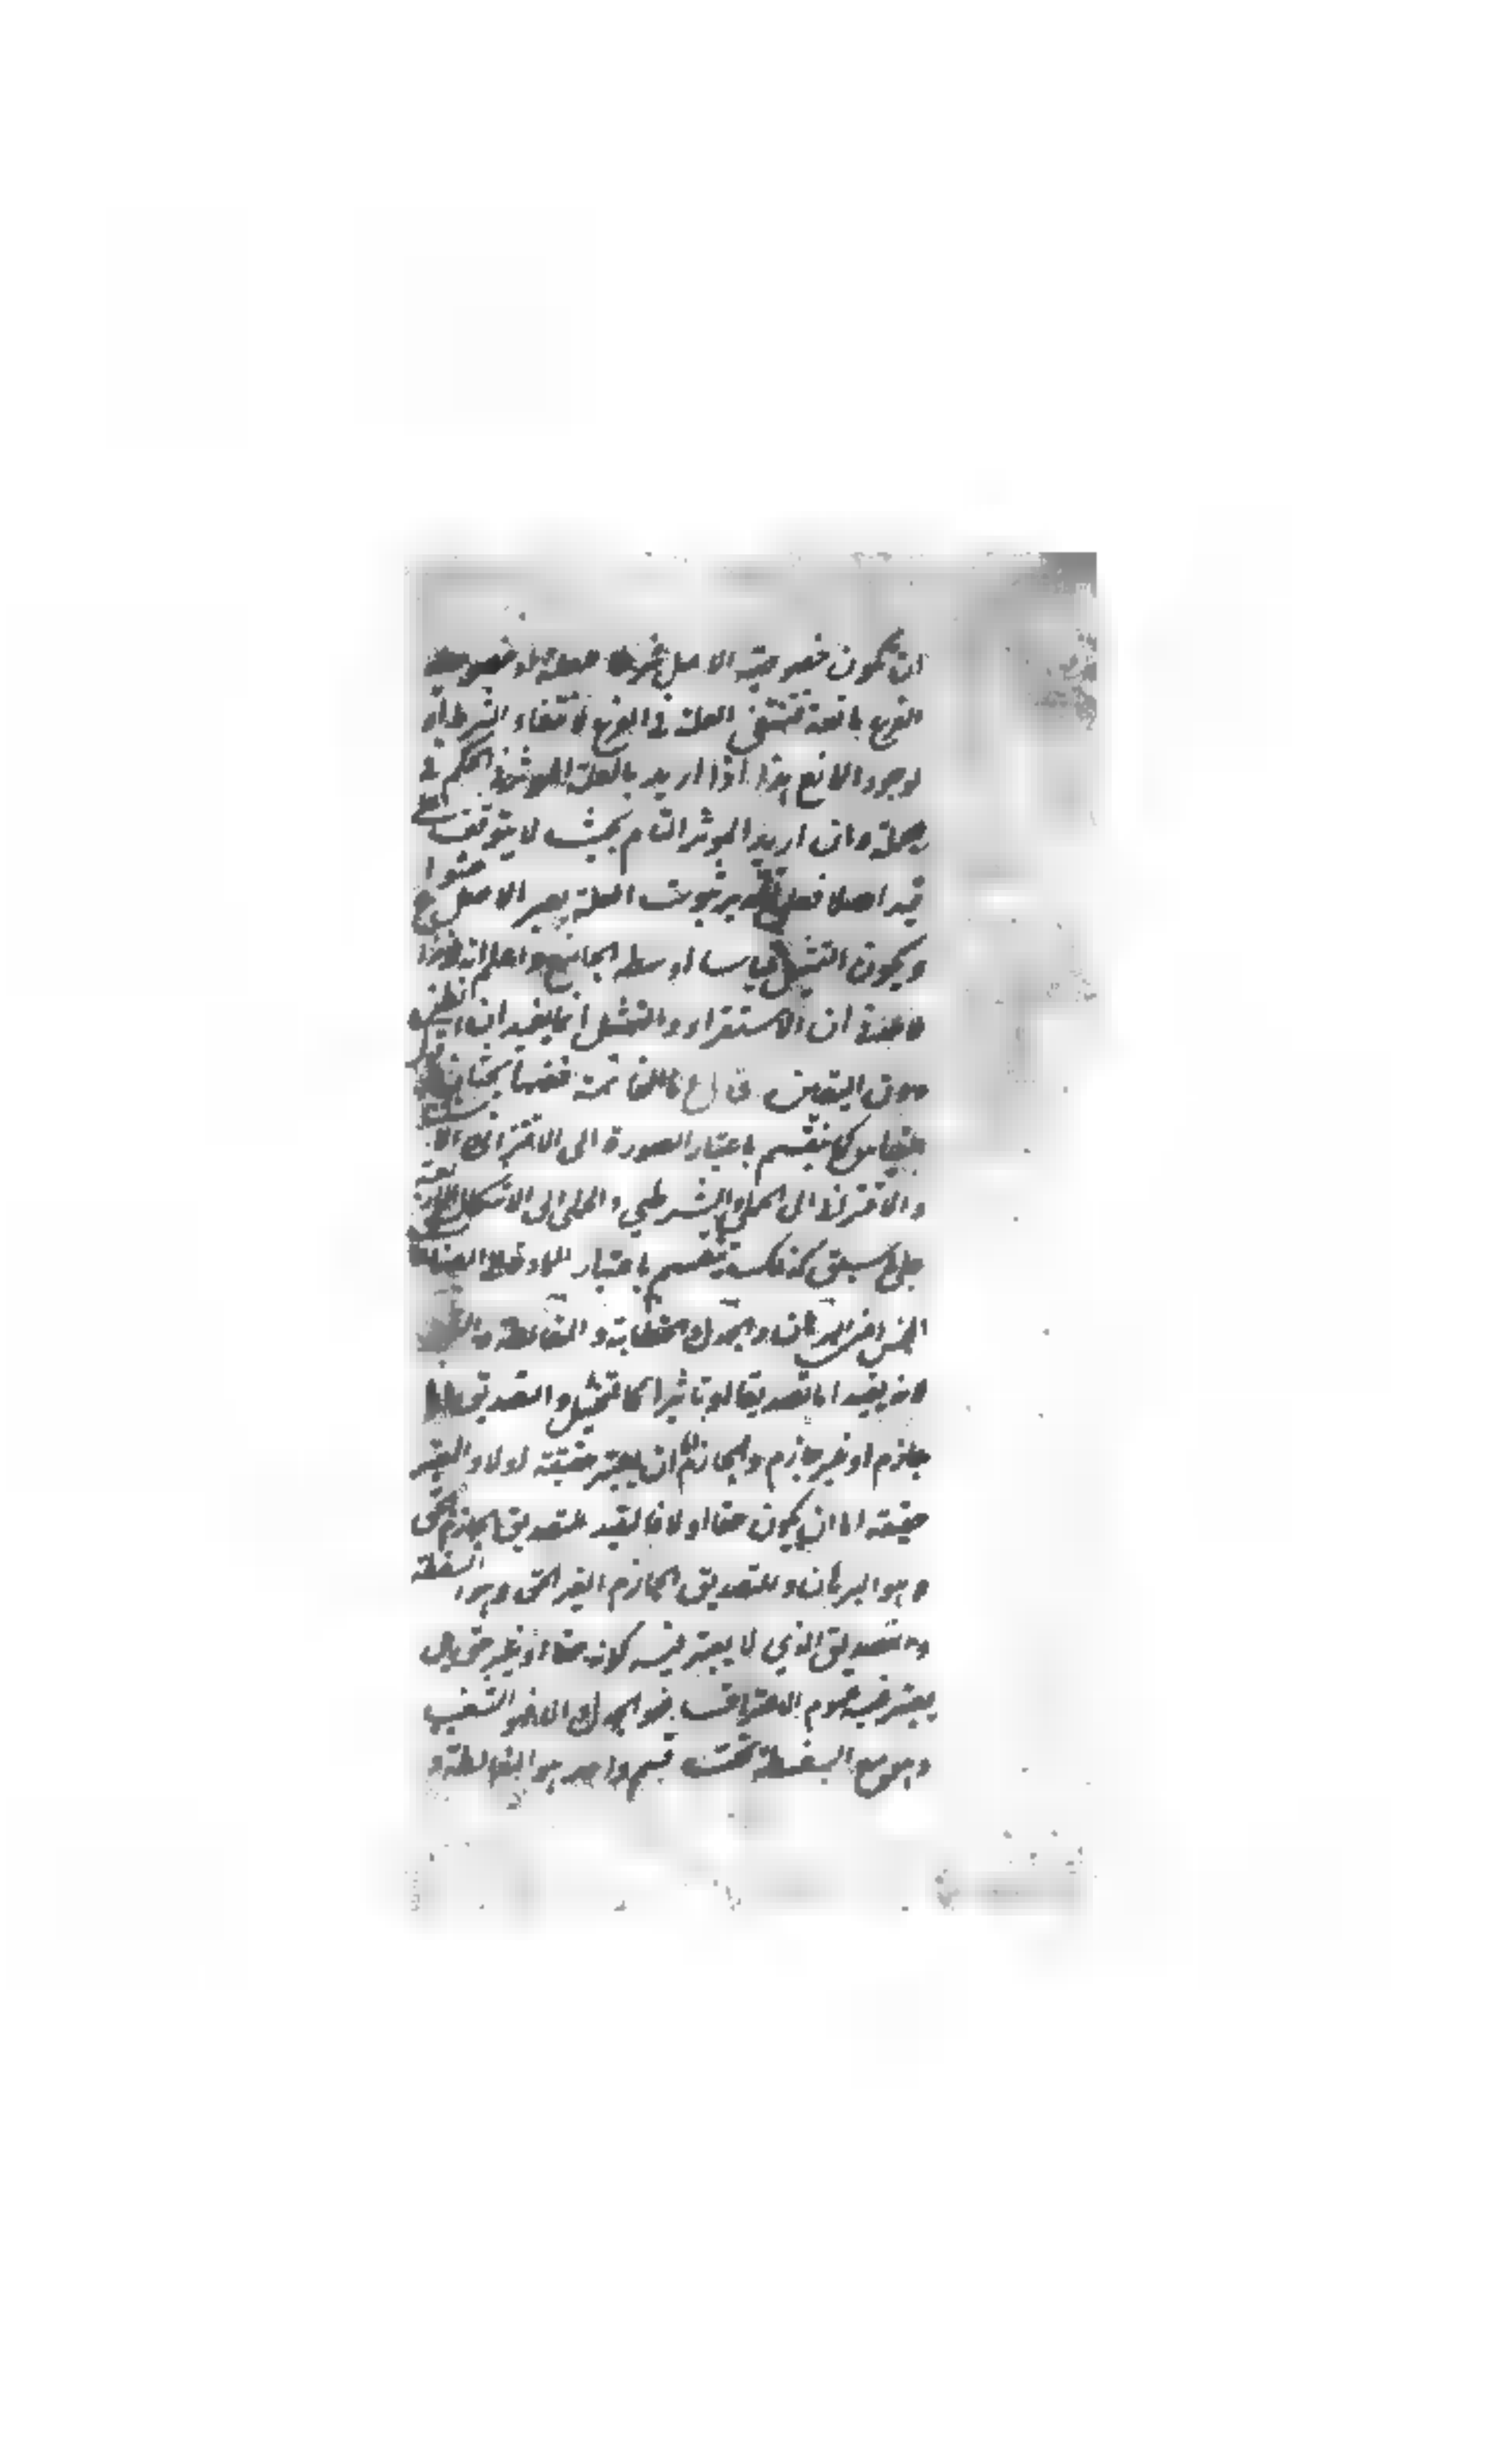 ان يكون خصوصية الاصل شرطا للعلة او خصوصية
الفرع مانعة فتنتفى العلة فى الفرع لانتفاء الشرط او
لوجود المانع هذا اذا اريد بالعلة المؤثر فى الحكم فى
الجملة وان اريد المؤثر التام بحيث لا يتوقف على
قيد اصلا فعلى تقدير ثبوت العلة يصير الاصل حشوا
ويكون التمثيل قياسا اوسطه الجامع واعلم انه
ان الاستقراء والتمثيل انما يفيدان الظن
دون اليقين قال الخاتمة ففيها بحثان
القياس كما ينقسم باعتبار الصورة الى الاقترانى
والاقترانى الى الحملى والشرطي والحملى الى الاشكال الاربعة
على ما سبق كذلك ينقسم باعتبار المادة الى الصناعات
الخمس اعنى البرهان والجدل والخطابة والمغالطة والشعر
لانه يفيد اما تصديقا او تاثيرا كالتخييل والتصديق اما
جازم او غير جازم والجازم اما ان يعتبر حقيته اولا والمعتبر
حقيته اما ان يكون حقا اولا فالمفيد للتصديق الجازم الحق
هو البرهان وللتصديق الجازم الغير الحق هو السفسطة
وللتصديق الذي لا يعتبر فيه كونه حقا او غير حق بل
يعتبر فيه عموم الاعتراف هو الجدل والا فهو الشغب
وهو مع السفسطة تحت قسم واحد هو المغالطة و